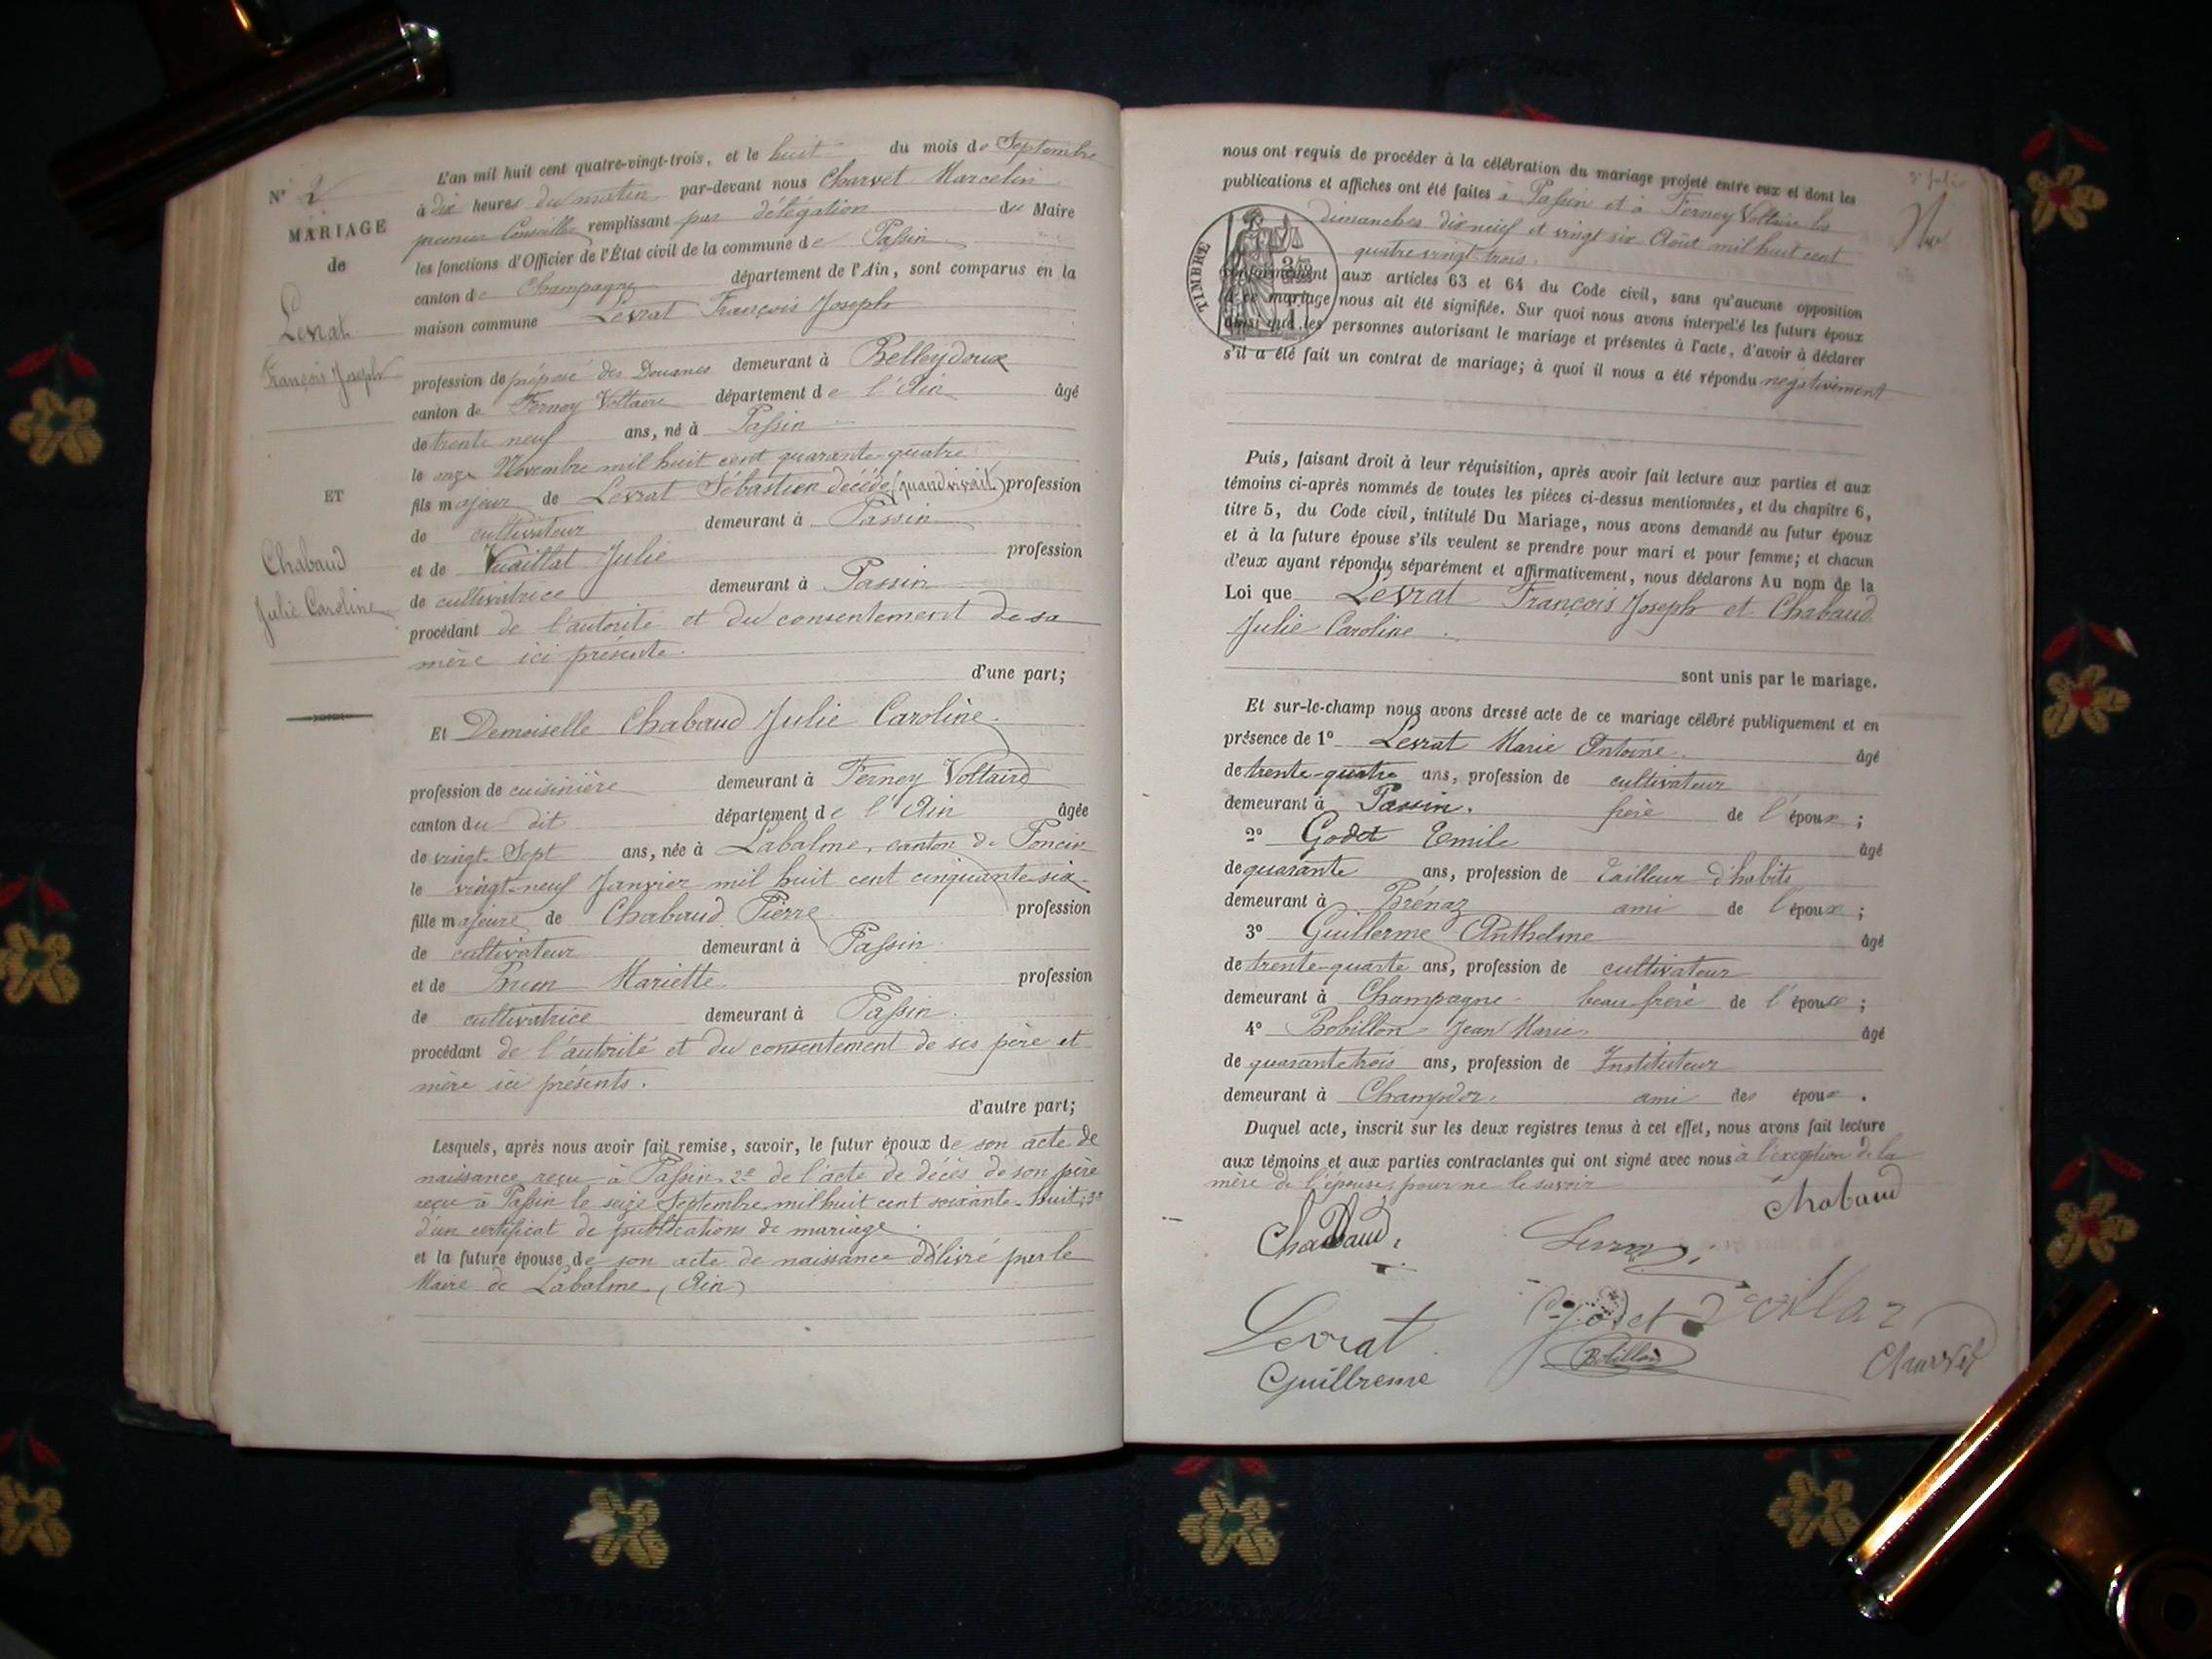 N° 2
MARIAGE
de
Levrat
François Joseph
ET
Chabaud
Julie Caroline
L'an mil huit cent quatre-vingt-trois, et le huit du mois de Septembre
à dix heures du matin par-devant nous Charvet Marcelin
premier Conseiller remplissant par délégation du Maire
les fonctions d'Officier de l'État civil de la commune de Passin
canton de Champagne département de l'Ain, sont comparus en la
maison commune Levrat François Joseph
profession de préposé des Douanes demeurant à Belleydoux
canton de Ferney Voltaire département de l'Ain âgé
de trente neuf ans, né à Passin
le onze Novembre mil huit cent quarante-quatre
fils majeur de Levrat Sébastien décédé (quand vivait) profession
de cultivateur demeurant à Passin
et de Vuaillat Julie profession
de cultivatrice demeurant à Passin
procédant de l'autorité et du consentement de sa
mère ici présente.
d'une part;
Et Demoiselle Chabaud Julie Caroline
profession de cuisinière demeurant à Ferney Voltaire
canton du dit département de l'Ain âgée
de vingt-Sept ans, née à Labalme, canton de Poncin
le vingt-neuf Janvier mil huit cent cinquante-six
fille majeure de Chabaud Pierre profession
de cultivateur demeurant à Passin
et de Mariette profession
de cultivatrice demeurant à Passin.
procédant de l'autorité et du consentement de ses père et
mère ici présents.
d'autre part;
Lesquels, après nous avoir fait remise, savoir, le futur époux de son acte de
naissance reçu à Passin, 2° de l'acte de décès de son père
reçu à Passin le seize Septembre mil huit cent soixante-huit; 3°
d'un certificat de publications de mariage
et la future épouse de son acte de naissance délivré par le
Maire de Labalme, (Ain)
nous ont requis de procéder à la célébration du mariage projeté entre eux et dont les
publications et affiches ont été faites à Passin et à Ferney Voltaire les
dimanches dix neuf et vingt six Août mil huit cent
quatre vingt-trois.
TIMBRE
conformément aux articles 63 et 64 du Code civil, sans qu'aucune opposition
à ce mariage nous ait été signifiée. Sur quoi nous avons interpellé les futurs époux
ainsi que les personnes autorisant le mariage et présentes à l'acte, d'avoir à déclarer
s'il a été fait un contrat de mariage; à quoi il nous a été répondu négativement
Puis, faisant droit à leur réquisition, après avoir fait lecture aux parties et aux
témoins ci-après nommés de toutes les pièces ci-dessus mentionnées, et du chapitre 6,
titre 5, du Code civil, intitulé Du Mariage, nous avons demandé au futur époux
et à la future épouse s'ils veulent se prendre pour mari et pour femme; et chacun
d'eux ayant répondu séparément et affirmativement, nous déclarons Au nom de la
Loi que Levrat François Joseph et Chabaud
Julie Caroline.
sont unis par le mariage.
Et sur-le-champ nous avons dressé acte de ce mariage célébré publiquement et en
présence de 1° Levrat Marie Antoine âgé
de trente-quatre ans, profession de cultivateur
demeurant à Passin. frère de l'époux;
2° Godet Emile âgé
de quarante ans, profession de tailleur d'habits
demeurant à Brénaz ami de l'époux;
3° Guillerme Anthelme âgé
de trente-quatre ans, profession de cultivateur
demeurant à Champagne beau frère de l'épouse;
4° Bobillon Jean Marie âgé
de quarante trois ans, profession de Instituteur
demeurant à Champdor. ami des époux.
Duquel acte, inscrit sur les deux registres tenus à cet effet, nous avons fait lecture
aux témoins et aux parties contractantes qui ont signé avec nous à l'exception de la
mère de l'épouse, pour ne le savoir
Chabaud
Chabaud
Levrat
Guillreme
Bobillon
Charvet